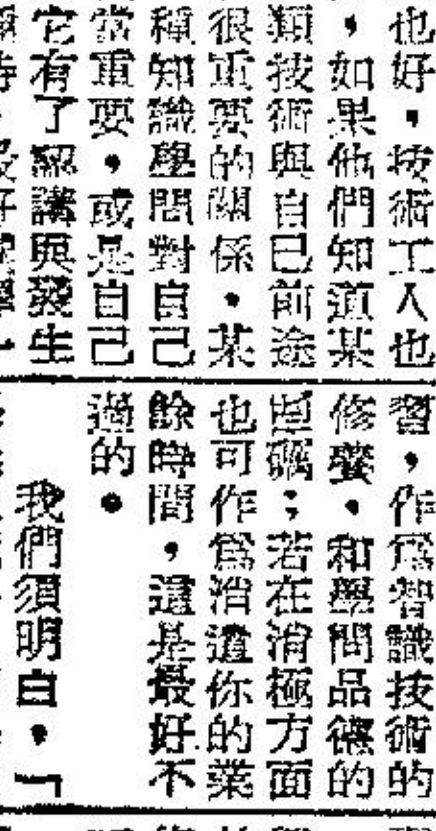 也好，技術工人也
，如果他們知道某
類技術與自己前途
很重要的關係，某
種知識學問對自己
當重要，或是自己
它有了認識與發生
習，作爲智識技術的
修養，和學問品德的
；若在消極方面
也可作爲消遣你的業
餘時間，這是最好不
過的。
我們須明白，「